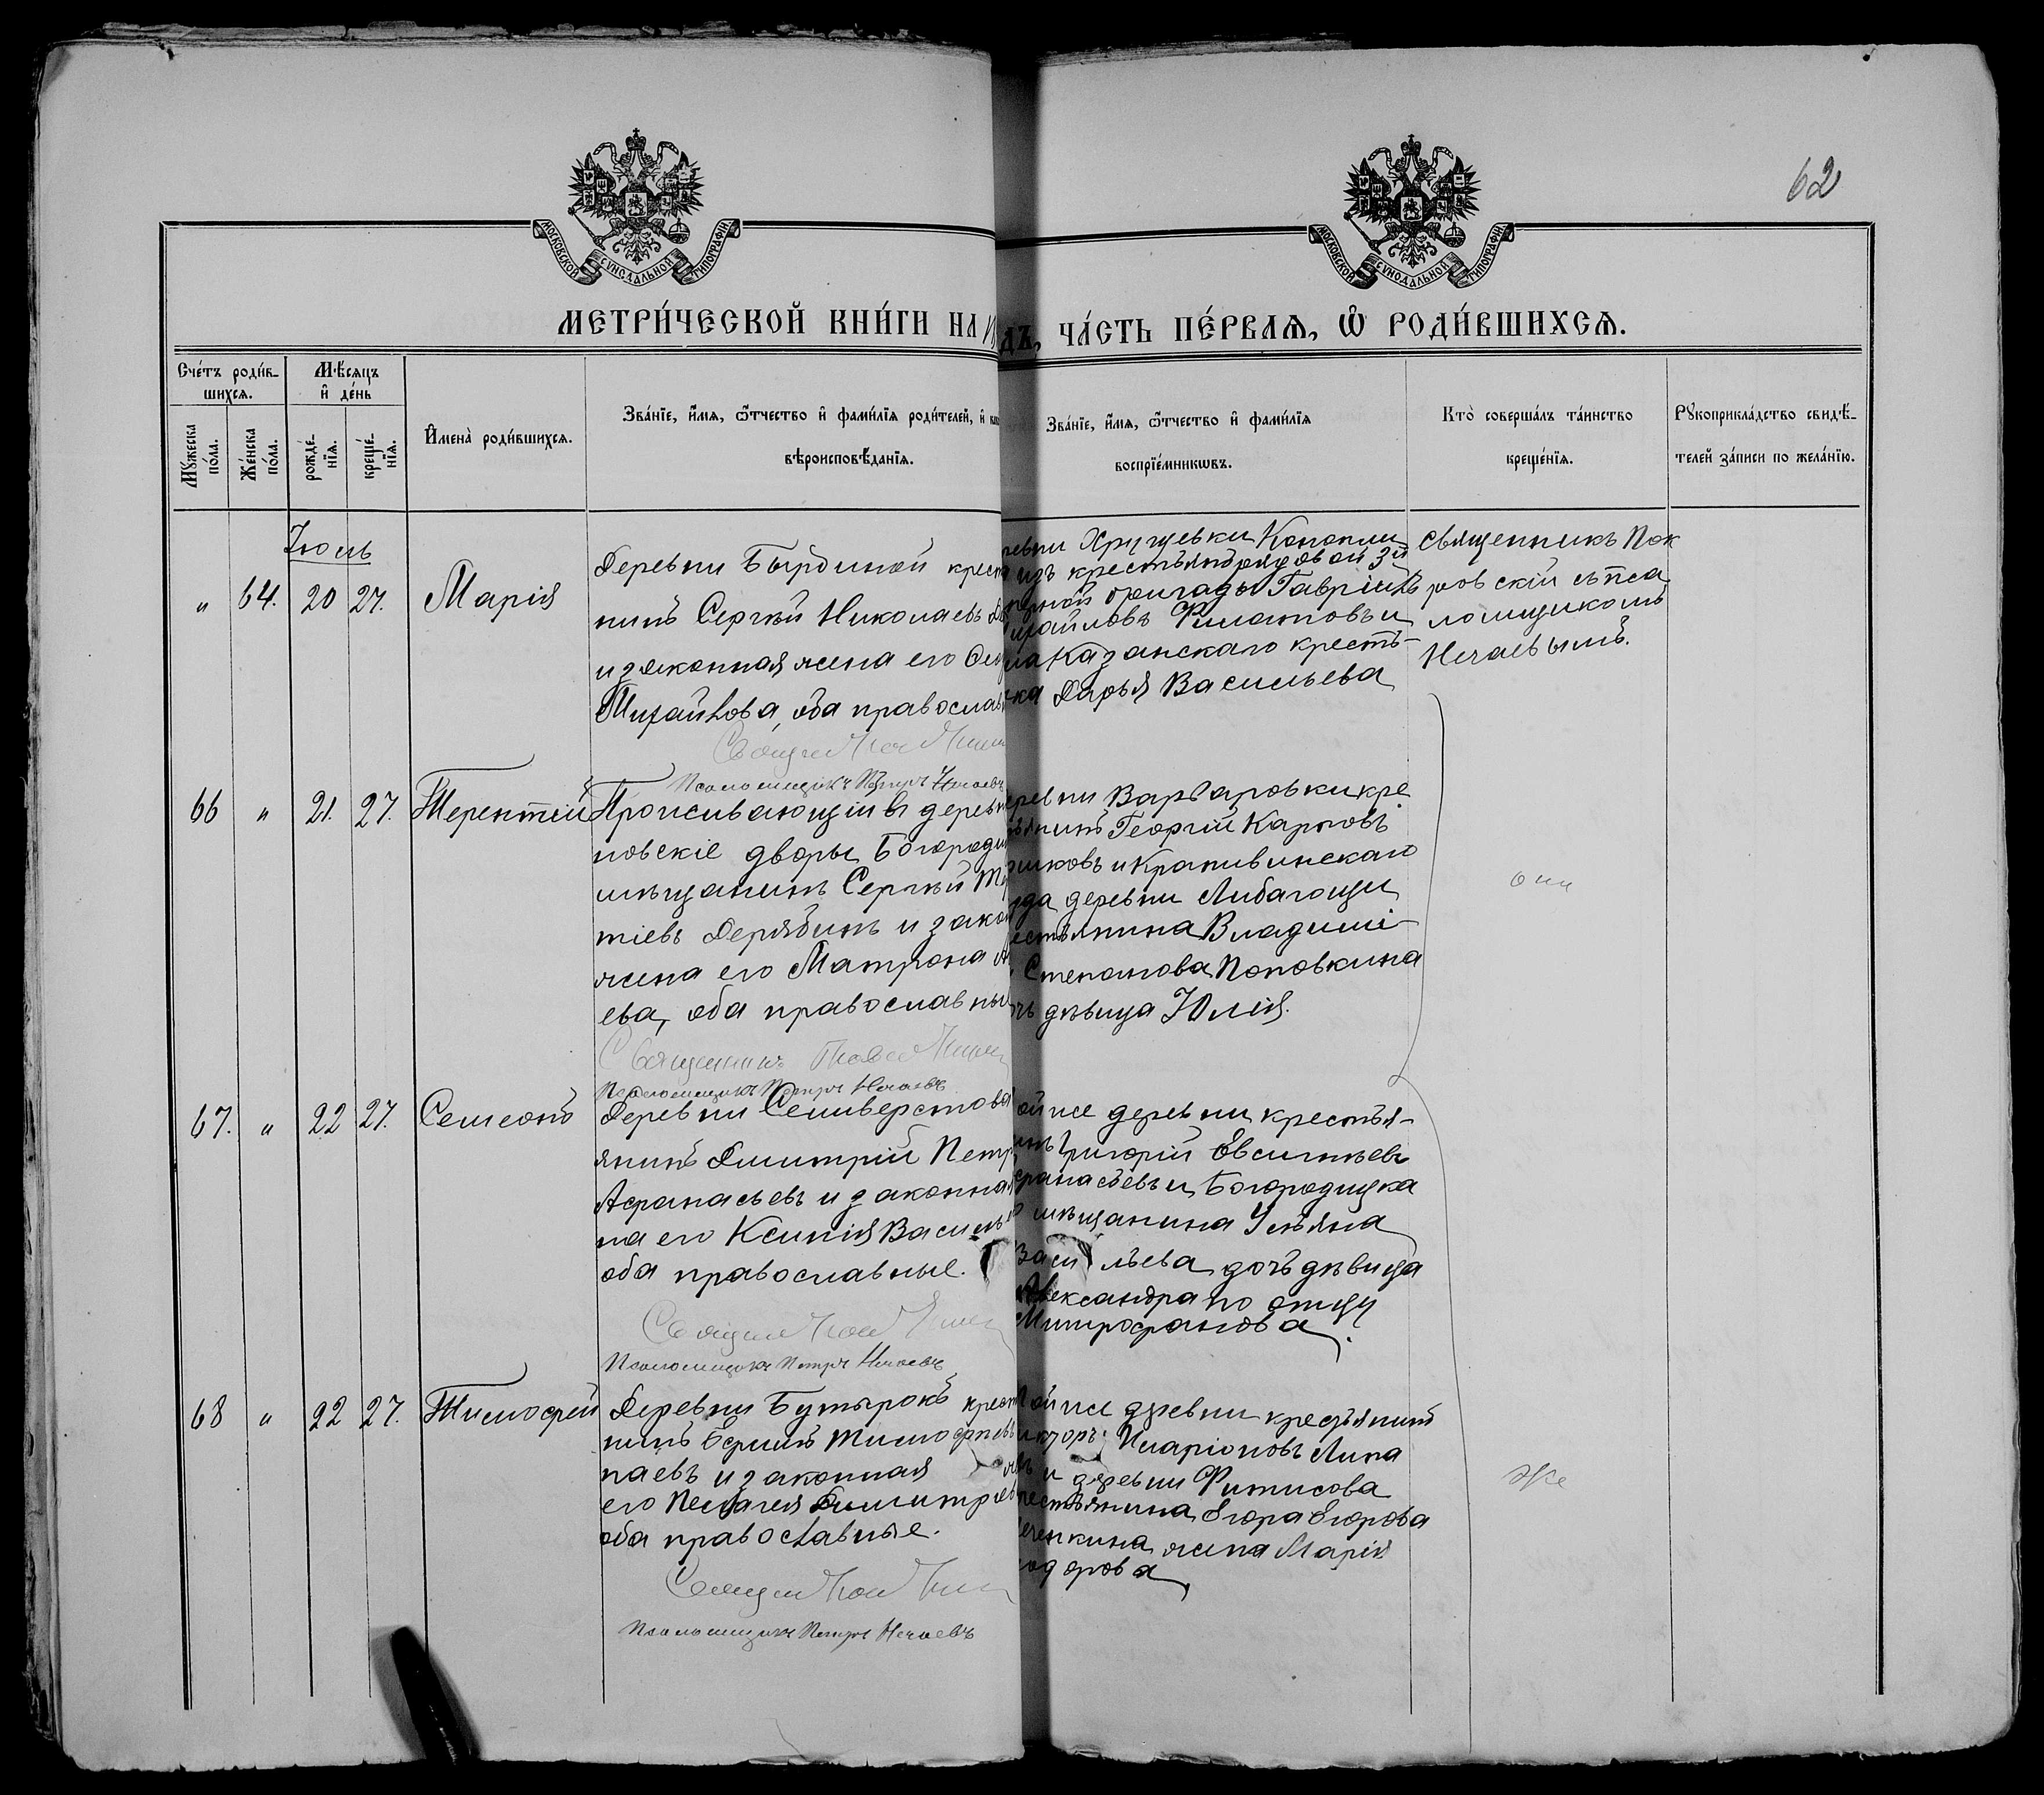 62
МОСКОВСКОЙ СѴНОДАЛЬНОЙ ТИПОГРАФІИ
МОСКОВСКОЙ СѴНОДАЛЬНОЙ ТИПОГРАФІИ
МЕТРИ́ЧЕСКОЙ КНИ́ГИ НА
ДЪ, ЧА́СТЬ ПЕ́РВАЯ, Ѿ РОДИ́ВШИХСЯ.
Сче́тъ роди́в-
шихся.
Мѣ́сяцъ
и҆ де́нь
Мꙋ́жеска по́ла.
Же́нска по́ла.
рожде́-нїя.
креще́-нїя.
И҆мена̀ роди́вшихся.
Зва́нїе, и҆́мя, ѻ҆́тчество и҆ фами́лїя роди́телей, и҆
вѣроисповѣ́данїя.
Зва́нїе, и҆́мя, ѻ҆́тчество и҆ фами́лїя
воспрїе́мникѡвъ.
Кто̀ соверша́лъ та́инство
креще́нїя.
Рꙋкоприкла́дство свидѣ́-
телей за́писи по жела́нїю.
Июль
" 64. 20 27. Марія
Деревни Бырдиной крест
нинъ Сергѣй Николаевъ
и законная жена его
Михайлова, оба православ
Псаломщикъ Петръ Нечаевъ
ревни Хрущевки
изъ крестьян рядовой 3й
ной бригады Гавріилъ
хайловъ Филатовъ и
ла Казанскаго кресть-
ка Дарья Васильева
Священникъ Пок
ровскій съ пса
ломщикомъ
Нечаевымъ.
66 " 21. 27. Терентій
Проживающій въ дерев
новскіе дворы Богороди
мѣщанинъ Сергѣй Те
тіевъ Дерябинъ и закон
жена его Матрона
ева, оба православны
Священникъ
Псаломщикъ Петръ Нечаевъ
ревни Варваровки кре
янинъ Георгій Карповъ
шковъ и Крапивинскаго
зда деревни
естьянина Владимі
Степанова Поповкина
чь дѣвица Юлія.
они
67. " 22 27. Семеонъ
Деревни Селиверстова
янинъ Дмитрій Петр
Афанасьевъ и законна
на его Ксенія Василь
оба православные.
Псаломщикъ Петръ Нечаевъ
ой же деревни крестья-
инъ Григорій Евсигнѣев
фанасьевъ и Богородицка
мѣщанина Ульяна
Васильева дочь дѣвица
Александра по отцу
Митрофанова.
68 " 22 27. Тимофей
Деревни Бутырокъ крест
нинъ Ефимъ Тимофѣевъ
паевъ и законная
его Пелагея Димитріев
оба православные.
Псаломщикъ Петръ Нечаевъ
ой же деревни крестьянинъ
икторъ Иларіоновъ Липа
въ и деревни Фитисова
рестьянина Егора Егорова
ченкина жена Марія
одорова
же